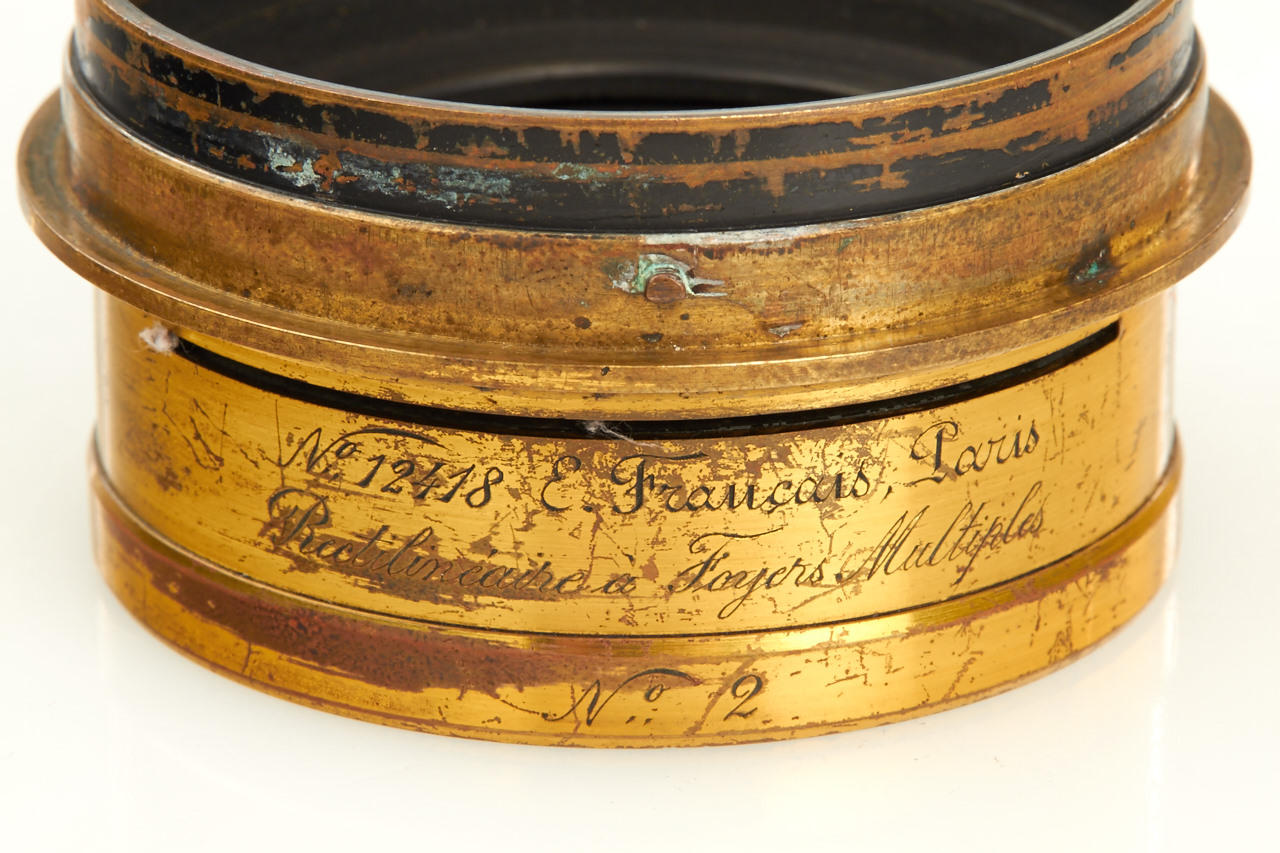 Nº 12418 E. Français, Paris
Rectilinéaire a Foyers Multiples
Nº 2